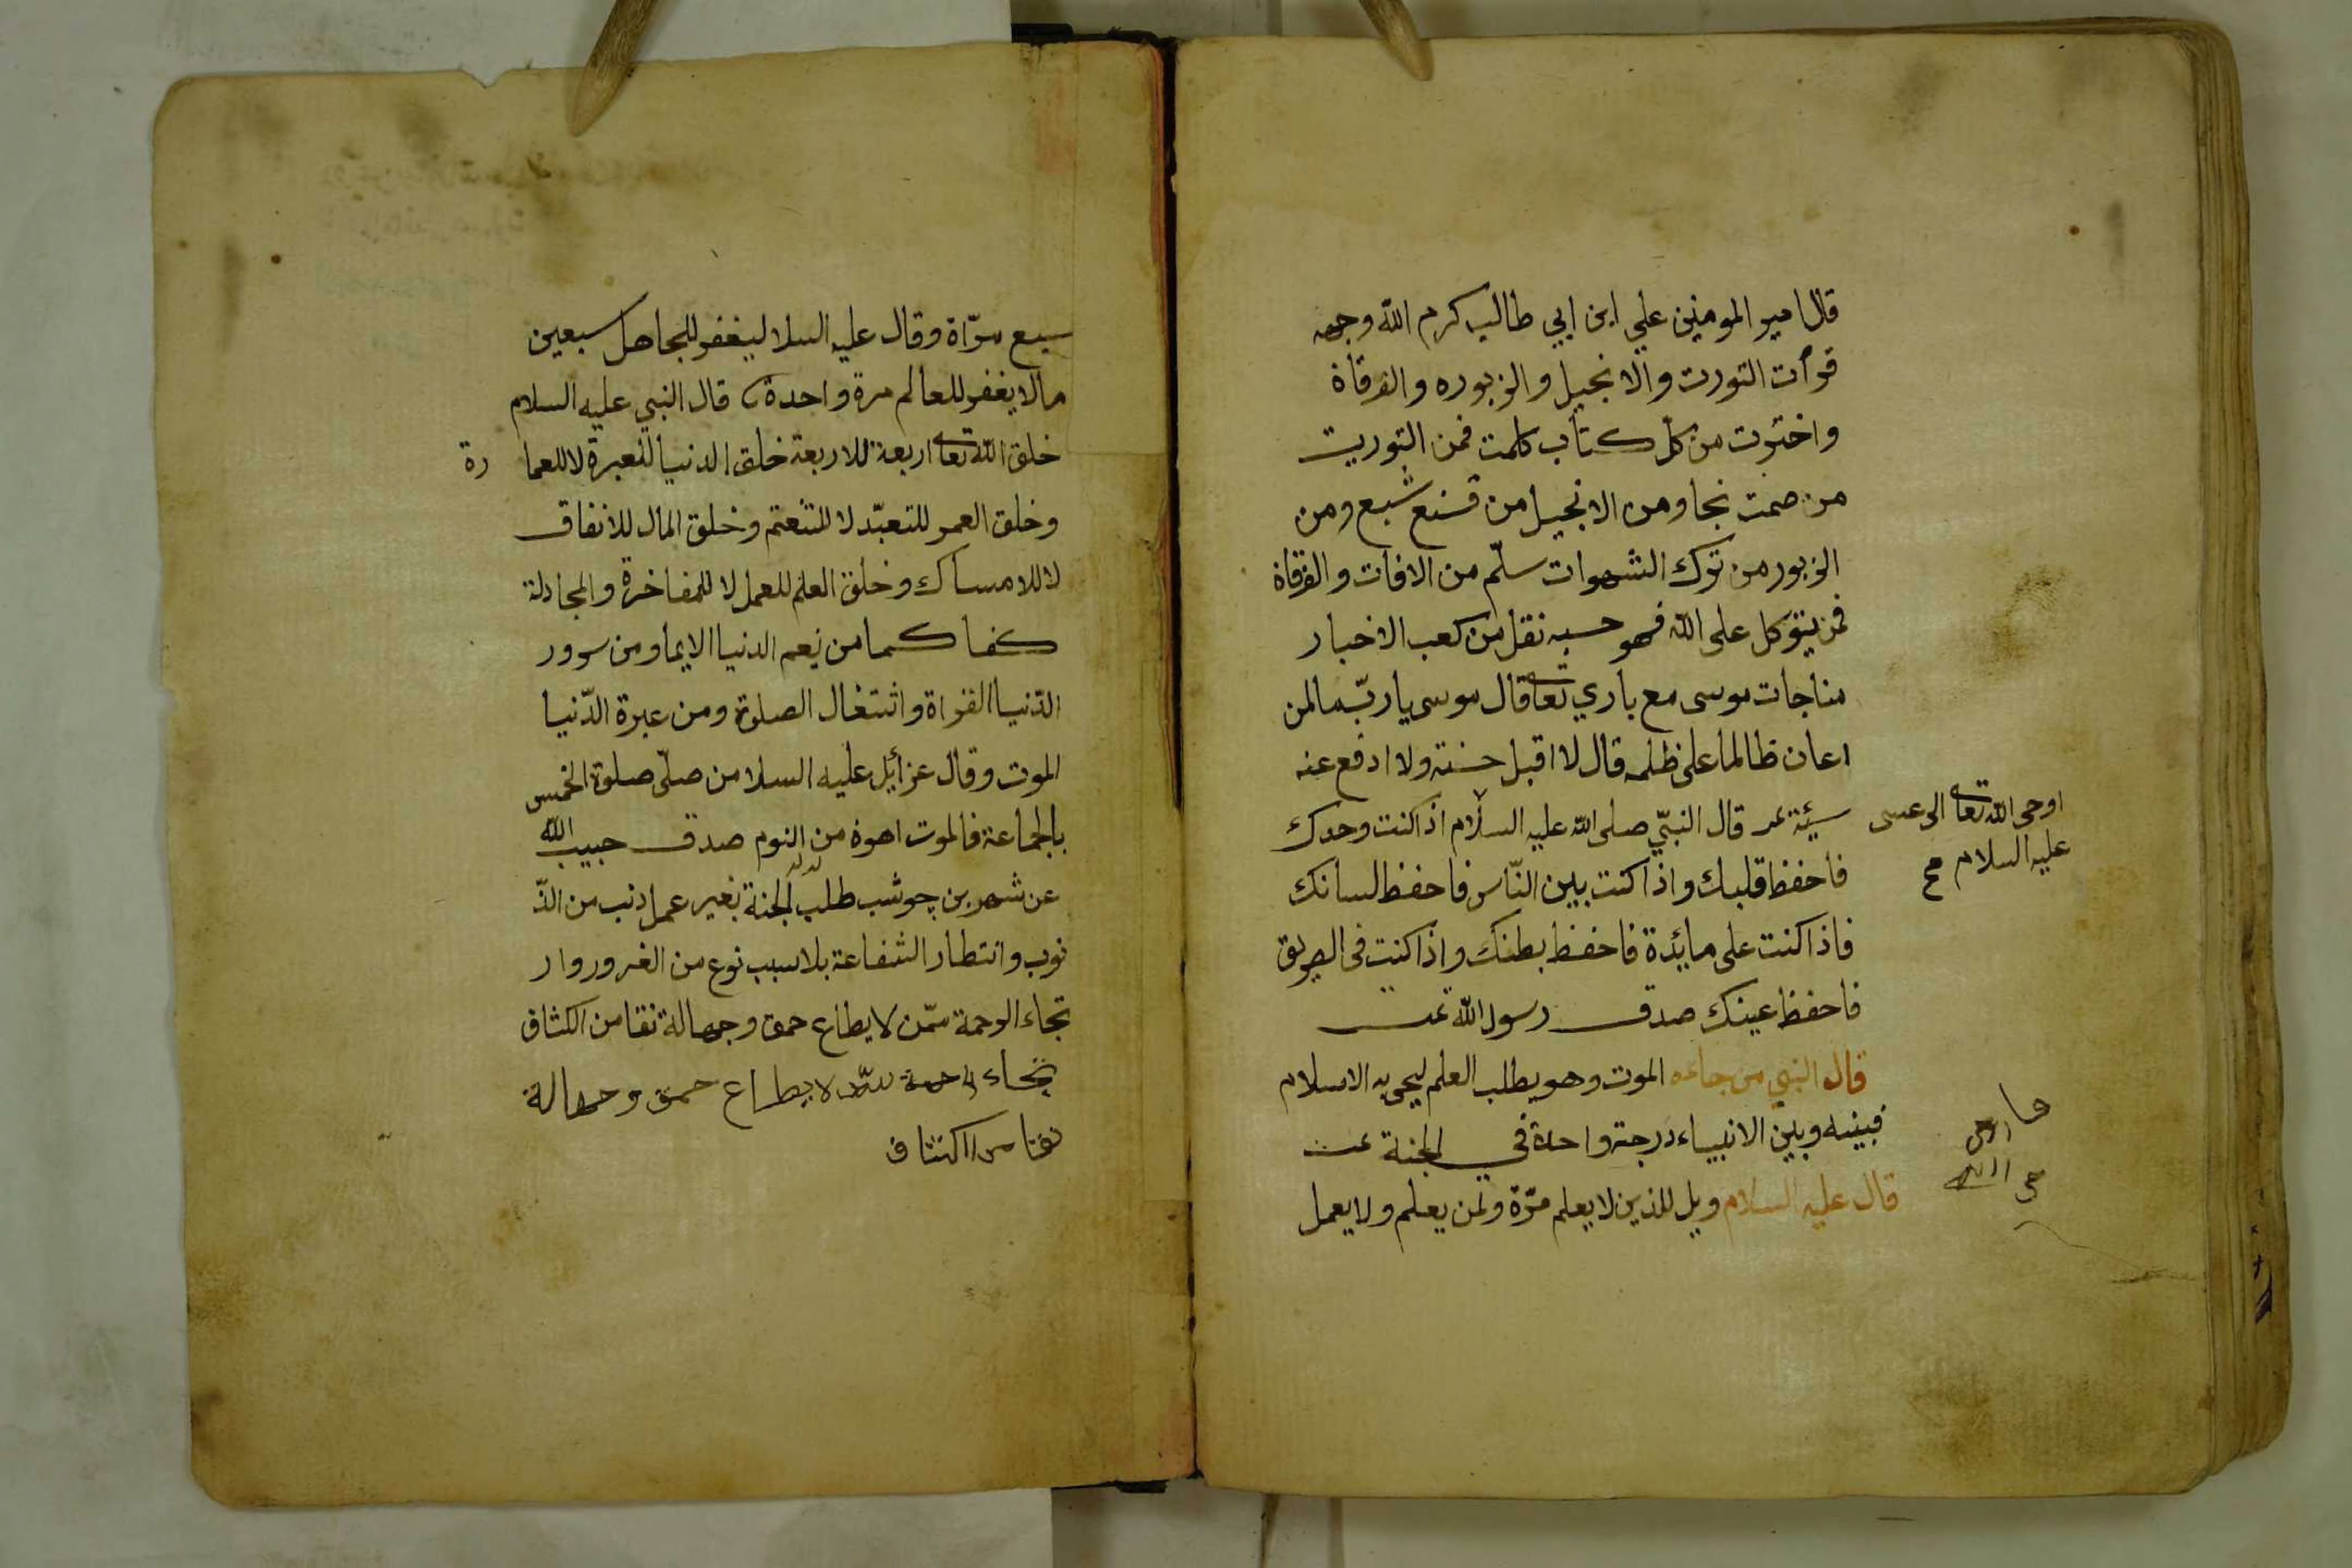 قال امير المومنين علي ابن ابي طالب كرم الله وجهه
قرأت التورت والانجيل والزبوره والفرقاة
واخترت من كلّ كتاب كلمت فمن التوريت
من صمت نجا ومن الانجيل من قنع شبع ومن
الزبور من ترك الشهوات سلّم من الافات والفرقاة
فمن يتوكل على الله فهو حسبه نقل من كعب الاخبار
مناجات موسى مع باري تعا قال موسى يا ربّ ما لمن
اعان ظالما على ظلمه قال لا اقبل حسنته ولا ادفع عنه
سيئة قال النبيّ صلى الله عليه السلام اذا كنت وحدك
اوحى الله تعا الى عسى
عليه السلام صح
فاحفظ قلبك واذا كنت بين النّاس فاحفظ لسانك
فاذا كنت على مايدة فاحفظ بطنك واذا كنت فى الطريق
فاحفظ عينك صدق رسول الله تمت
قال النبي من جاءه الموت وهو يطلب العلم ليحى به الاسلام
فبينه وبين الانبياء درجة واحدة في الجنة تمت
قال عليه السلام ويل للذين لا يعلم مرّة ولمن يعلم ولا يعمل
سبع مرّاة وقال عليه السلا ليغفر للجاهل سبعين
مالا يغفر للعالم مرة واحدة قال النبي عليه السلام
خلق الله تعا اربعة للاربعة خلق الدنيا للعبرة لا للعما رة
وخلق العمر للتعبّد لا للتنعّم وخلق المال للانفاق
لا للامساك وخلق العلم للعمل لا للمفاخرة والمجادلة
كفا كما من نعم الدنيا الايما ومن سرور
الدّنيا القراة واشتغال الصلوة ومن عبرة الدّنيا
الموت وقال عزائيل عليه السلا من صلّى صلوة الخمس
بالجماعة فالموت اهوة من النوم صدق حبيب الله
عن شهر بن چوشب طلب الجنة بغير عمل ذنب من الذّ
نوب وانتطار الشفاعة بلا سبب نوع من الغرور وار
تجاء الرحمة ممّن لا يطاع حمق وجهالة نقا من الكشاف
تجاء الرحمة ممّن لا يطاع حمق وجهالة
نقا من الكشاف